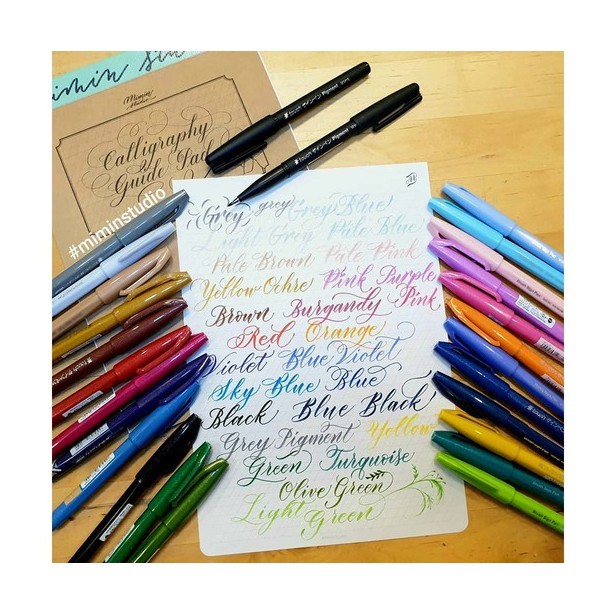 mimin stu
Mimin
Studio
Calligraphy
Guide Pad
#miminstudio
touch サインペン Pigment
touch サインペン Pigment
Grey grey Grey Blue
Light Grey Pale Blue
Pale Brown Pale Pink
Yellow Ochre Pink Purple
Brown Burgandy Pink
Red Orange
Violet Blue Violet
Sky Blue Blue
Black Blue Black
Grey Pigment Yellow
Green Turquoise
Olive Green
Light
Green